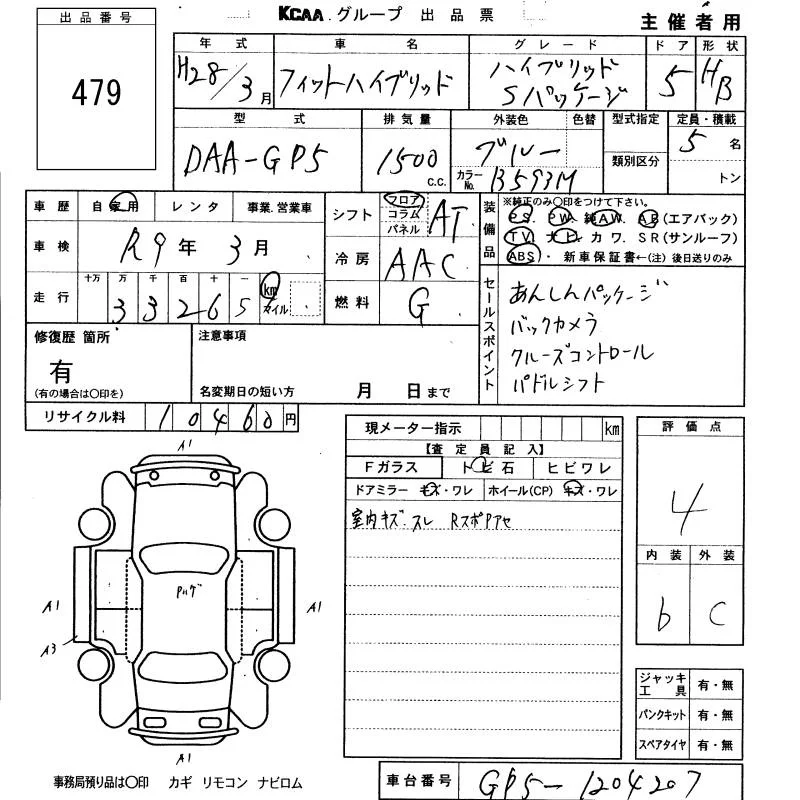 KCAA.グループ 出品票
主催者用
出品番号
479
年式 車名 グレード ドア 形状
H28/3月 フィットハイブリッド ハイブリッド Sパッケージ 5 HB
型式 排気量 外装色 色替 型式指定 定員・積載
DAA-GP5 1500 c.c. ブルー カラーNo. B593M 類別区分 5名 トン
車歴 自家用 レンタ 事業.営業車
車検 R9年 3月
走行 十万 万 千 百 十 一 km マイル
33265
シフト フロア コラム パネル AT
冷房 AAC
燃料 G
装備品 ※純正のみ〇印をつけて下さい。
PS. PW. 純AW. AB(エアバック)
TV. ナビ. カワ. SR(サンルーフ)
ABS・新車保証書←(注)後日送りのみ
セールスポイント
あんしんパッケージ
バックカメラ
クルーズコントロール
パドルシフト
修復歴 箇所
有
(有の場合は〇印を)
注意事項
名変期日の短い方 月 日まで
リサイクル料 10460円
現メーター指示 km
【査定員記入】
Fガラス トビ石 ヒビワレ
ドアミラー キズ・ワレ ホイール(CP) キズ・ワレ
室内キズ.スレ RスポPアセ
評価点
4
内装 外装
b C
A1
Pルゲ
A1 A1
A3
A1
ジャッキ工具 有・無
パンクキット 有・無
スペアタイヤ 有・無
事務局預り品は〇印 カギ リモコン ナビロム
車台番号 GP5-1204207